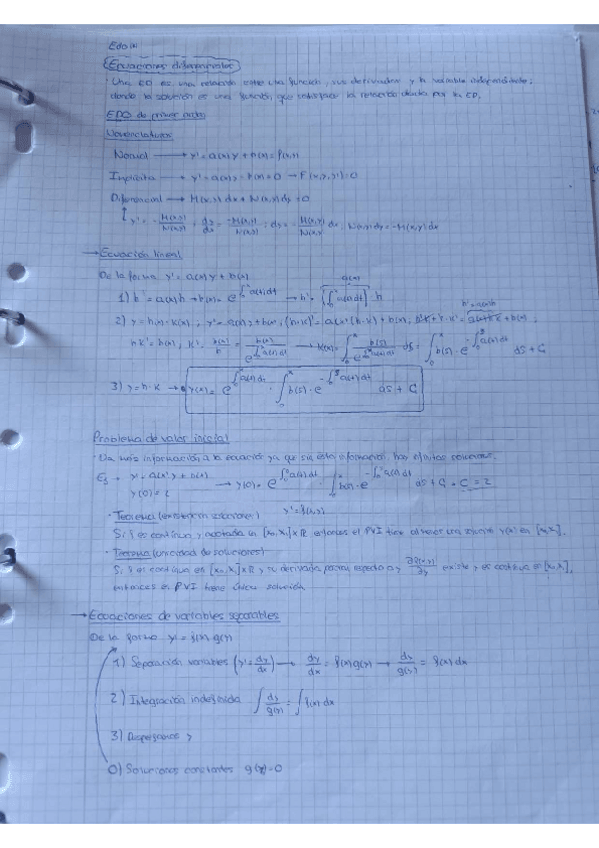 Ecuaciones diferenciales
· Una ED es una relación entre una función, sus derivadas y la variable independiente;
donde la solución es una función, que satisface la relación dada por la ED.
EDO de primer orden
Nomenclaturas
Normal → y' = a(x) y + b(x) = f(x,y)
Implícita → y' - a(x)y - b(x) = 0 → F(x,y,y') = 0
Diferencial → M(x,y) dx + N(x,y) dy = 0
y' = - M(x,y)/N(x,y) ; dy/dx = -M(x,y)/N(x,y) ; dy = - M(x,y)/N(x,y) dx ; N(x,y) dy = -M(x,y) dx
→ Ecuación lineal
De la forma y' = a(x) y + b(x)
1) h' = a(x) h → h(x) = e^{∫₀ˣ a(t) dt} → h' = [∫₀ˣ a(t) dt]' h
2) y = h(x) · k(x) ; y' = a(x) y + b(x) ; (h·k)' = a(x) (h·k) + b(x) ;
h k' = b(x) ; k' = b(x)/h
ds + C
3) y = h · k → y(x) = e^{∫₀ˣ a(t) dt} · ∫₀ˣ b(s) · e^{-∫₀ˢ a(t) dt} ds + C
Problema de valor inicial
· Da más información a la ecuación ya que sin esta información hay infinitas soluciones.
Ej → y' = a(x) y + b(x)
y(0) = 2
· Teorema (existencia soluciones) y' = f(x,y)
Si f es continua y acotada en [x₀,x₁] x ℝ entonces el PVI tiene al menos una solución y(x) en [x₀,x₁].
· Teorema (unicidad de soluciones)
Si f es continua en [x₀,x₁] x ℝ y su derivada parcial respecto a y ∂f(x,y)/∂y existe y es continua en [x₀,x₁],
entonces el PVI tiene única solución
→ Ecuaciones de variables separables
De la forma y' = f(x) g(y)
1) Separación variables (y' = dy/dx) → dy/dx = f(x) g(y) → dy/g(y) = f(x) dx
2) Integración indefinida ∫ dy/g(y) = ∫ f(x) dx
3) Despejamos y
0) Soluciones constantes g(y) = 0